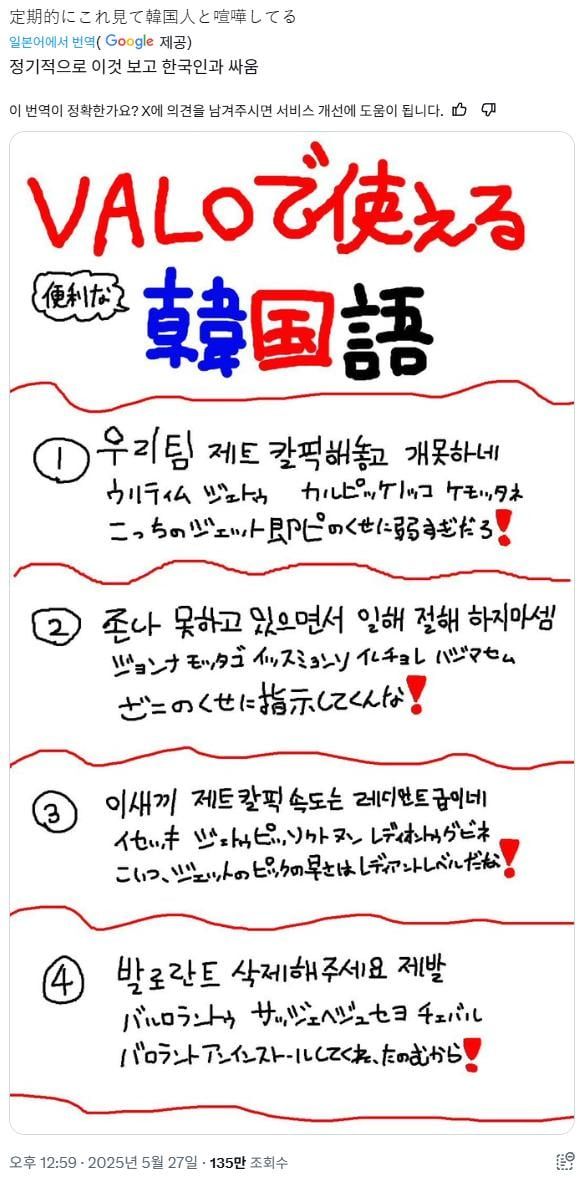 定期的にこれ見て韓国人と喧嘩してる
일본어에서 번역( Google 제공)
정기적으로 이것 보고 한국인과 싸움
이 번역이 정확한가요? X에 의견을 남겨주시면 서비스 개선에 도움이 됩니다.
VALOで使える
便利な
韓国語
① 우리팀 제트 칼픽해놓고 개못하네
ウリティム ジェトゥ カルピッケノッコ ケモッタネ
こっちのジェット即ピのくせに弱すぎだろ!
② 존나 못하고 있으면서 일해 절해 하지마셈
ジョンナ モッタゴ イッスミョンソ イレチョレ ハジマセム
ざこのくせに指示してくんな!
③ 이새끼 제트칼픽 속도는 레디언트급이네
イセッキ ジェトゥピッソクトヌン レディオントゥグビネ
こいつ、ジェットのピックの早さはレディアントレベルだな!
④ 발로란트 삭제해주세요 제발
バルロラントゥ サッジェヘジュセヨ チェバル
バロラントアンインストールしてくれ、たのむから!
오후 12:59 · 2025년 5월 27일 · 135만 조회수